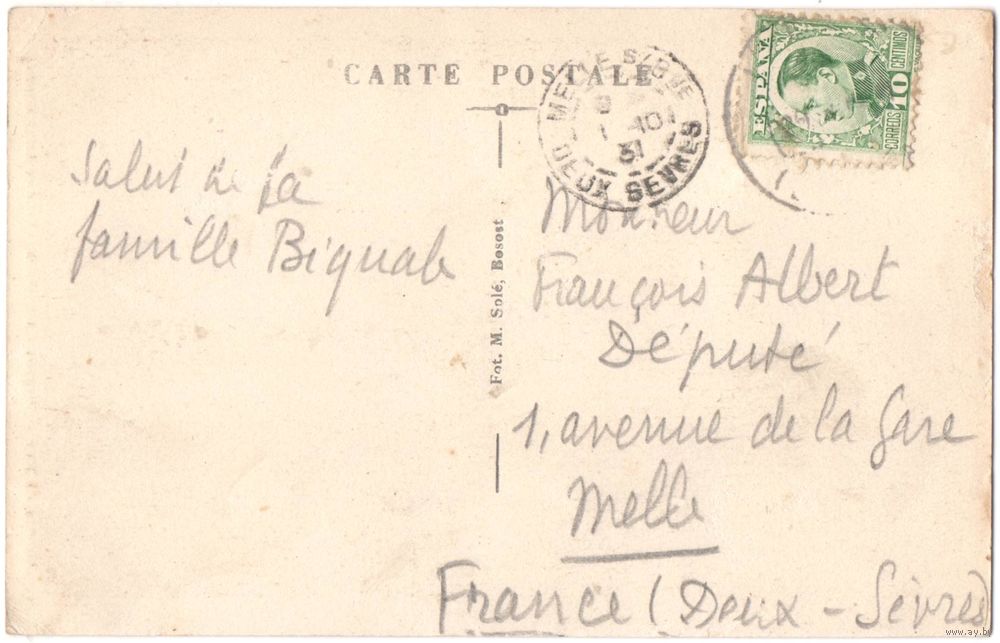 CARTE POSTALE
ESPAÑA
CORREOS 10 CENTIMOS
MELLE S/BUE
1 -10
31
DEUX SEVRES
Salut de la
famille
Fot. M. Solé, Bosost
Monsieur
François Albert
Député
1, avenue de la Gare
Melle
France (Deux - Sèvres
www.ay.by